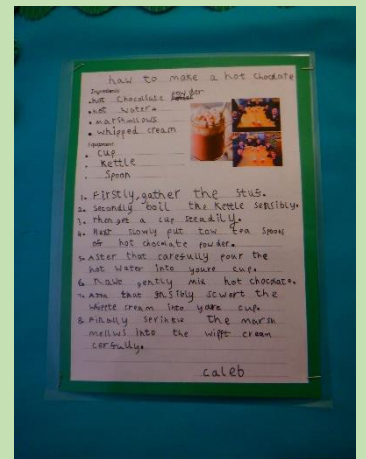 how to make a hot chocolate
Ingredients
• hot chocolate powder
• hot water.
• marshmallows
• whipped cream
Equipment
• cup
• Kettle
• Spoon
1. Firstly, gather the stuf.
2. Secondly boil the Kettle sensibly.
3. then get a cup steadily.
4. Next slowly put tow tea spoons
of hot chocmate powder.
5. After that carefully pour the
hot water into youre cup.
6. gently mix hot chocolate.
7. that scwert the
cream into youre cup.
8. Finally sprinkle the marsh
mellws into the wipft cream
carfully.
caleb